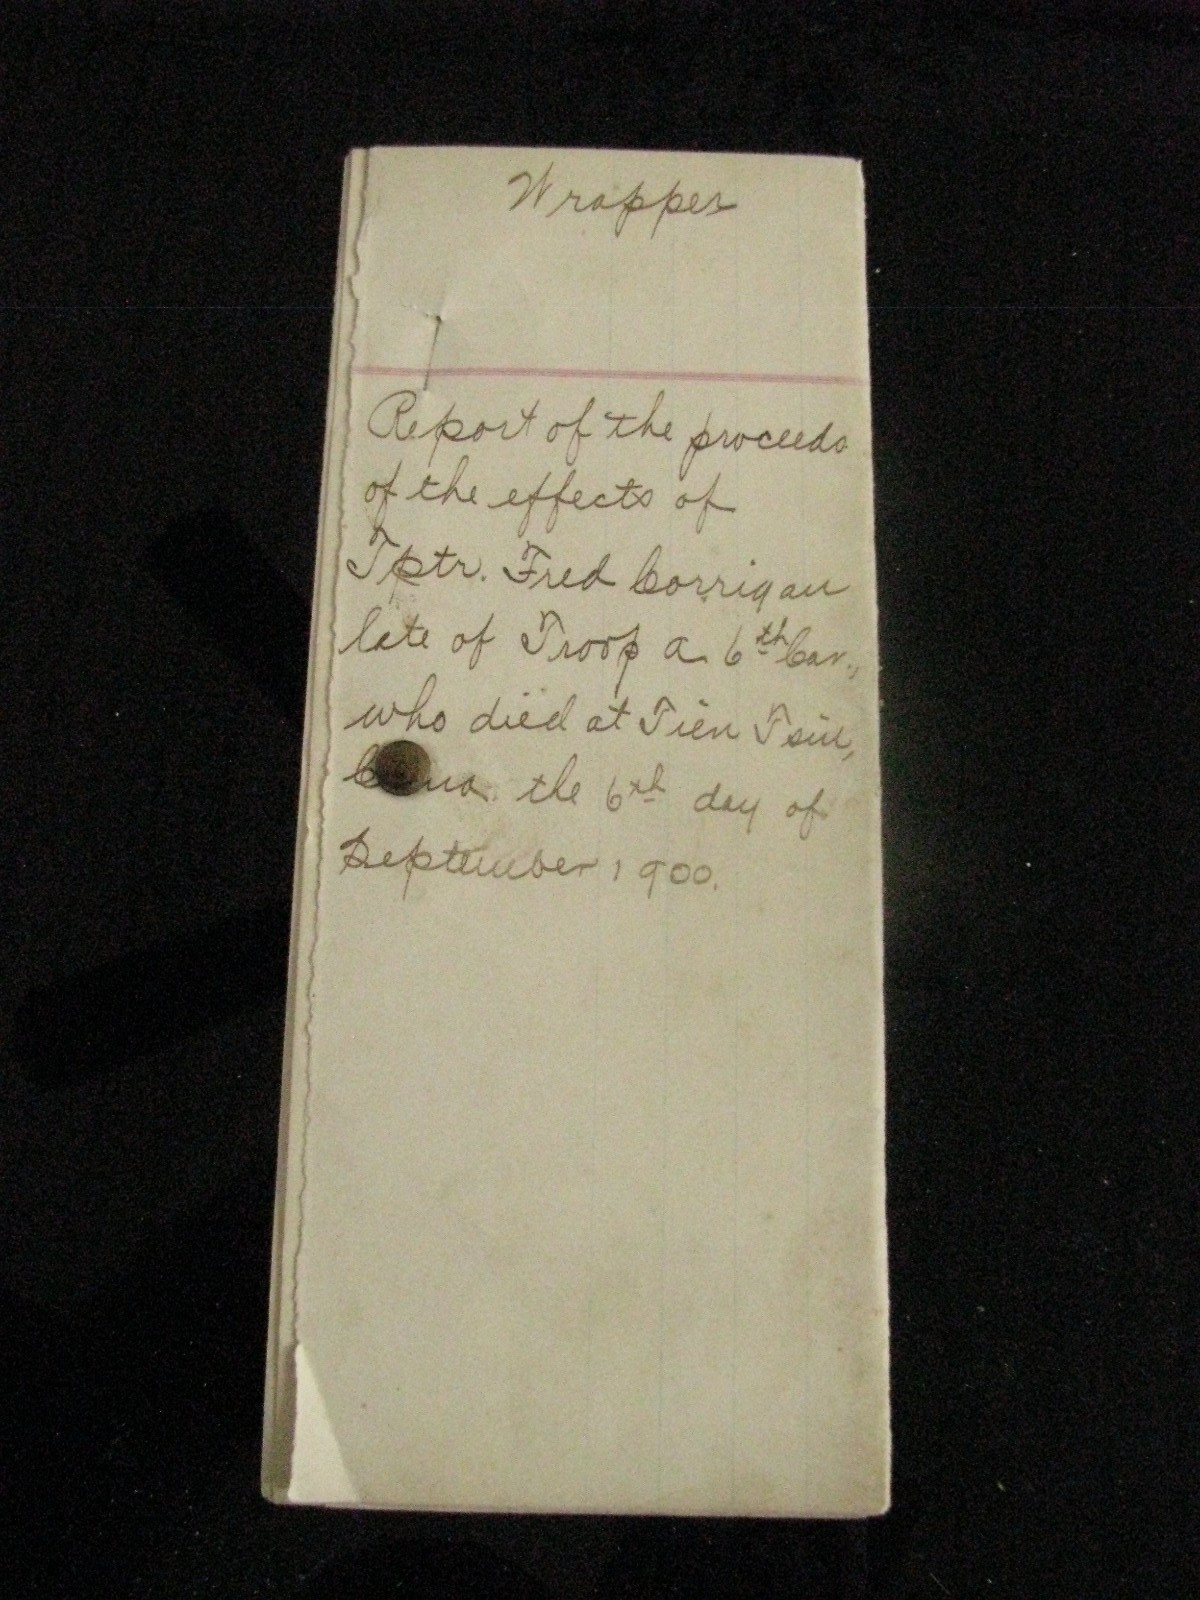 Wrapper
Report of the proceeds
of the effects of
Tptr. Fred Corrigan
late of Troop A. 6th Cav.,
who died at Tien Tsin,
the 6th day of
September 1900.